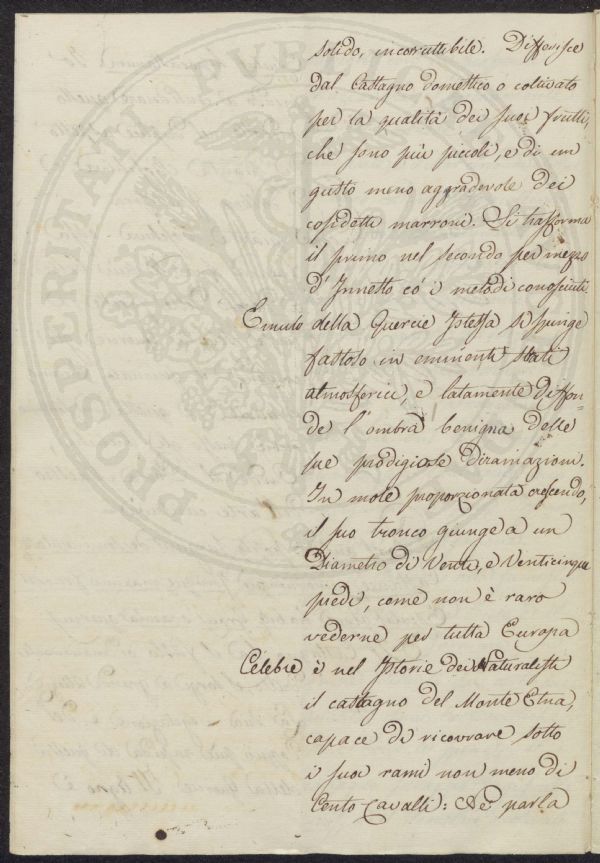 solido, incorruttibile. Differisce
dal Castagno domestico o coltivato
per la qualità dei suoi frutti,
che sono più piccoli, e di un
gusto meno aggradevole dei
cosidetti marroni. Si trasforma
il primo nel secondo per mezzo
d'Innesto co' i metodi conosciuti
Emulo della Quercie Istessa si spinge
fastoso in eminenti stati
atmosferici, e latamente diffon-
de l'ombra benigna delle
sue prodigiose Diramazioni.
In mole proporzionata crescendo,
il suo tronco giunge a un
Diametro di Venti, e Venticinque
piedi, come non è raro
vederne per tutta Europa
Celebre è nel Istorie dei Naturalisti
il castagno del Monte Etna,
capace di ricovrare sotto
i suoi rami non meno di
Cento Cavalli: Ne parla
PROSPERITATI PUBL